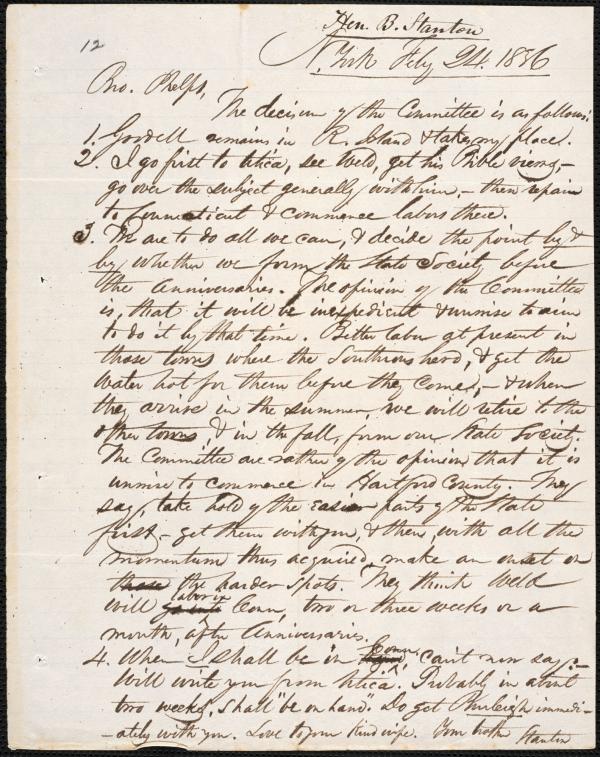 Hen. B. Stanton
12
N. York Feby 24. 1836
Bro. Phelps,
The decision of the Committee is as follows:
1. Goodell remains in R. Island & takes my place.
2. I go first to Utica, see Weld, get his Bible views, –
go over the subject generally with him, – then repair
to Connecticut & commence labors there.
3. We are to do all we can, & decide the point by &
by, whether we form the State Society before
the Anniversaries. The opinion of the Committee
is, that it will be inexpedient & unwise to aim
to do it by that time. Better labor at present in
those towns where the Southrons herd, & get the
water hot for them before they come, – & when
they arrive in the summer, we will retire to the
other towns, & in the fall, form our State Society.
The Committee are rather of the opinion that it is
unwise to commence in Hartford County. They
say, take hold of the easier parts of the State
first – get them with you, & then, with all the
momentum thus acquired make an onset on
those the harder spots. They think Weld
will labor in Conn, two or three weeks or a
month, after Anniversaries.
4. When I shall be in Conn. can't now say: –
Will write you from Utica. Probably in about
two weeks, shall "be on hand." Do get Burleigh immedi-
-ately with you. Love to your kind wife. Your broth Stanton